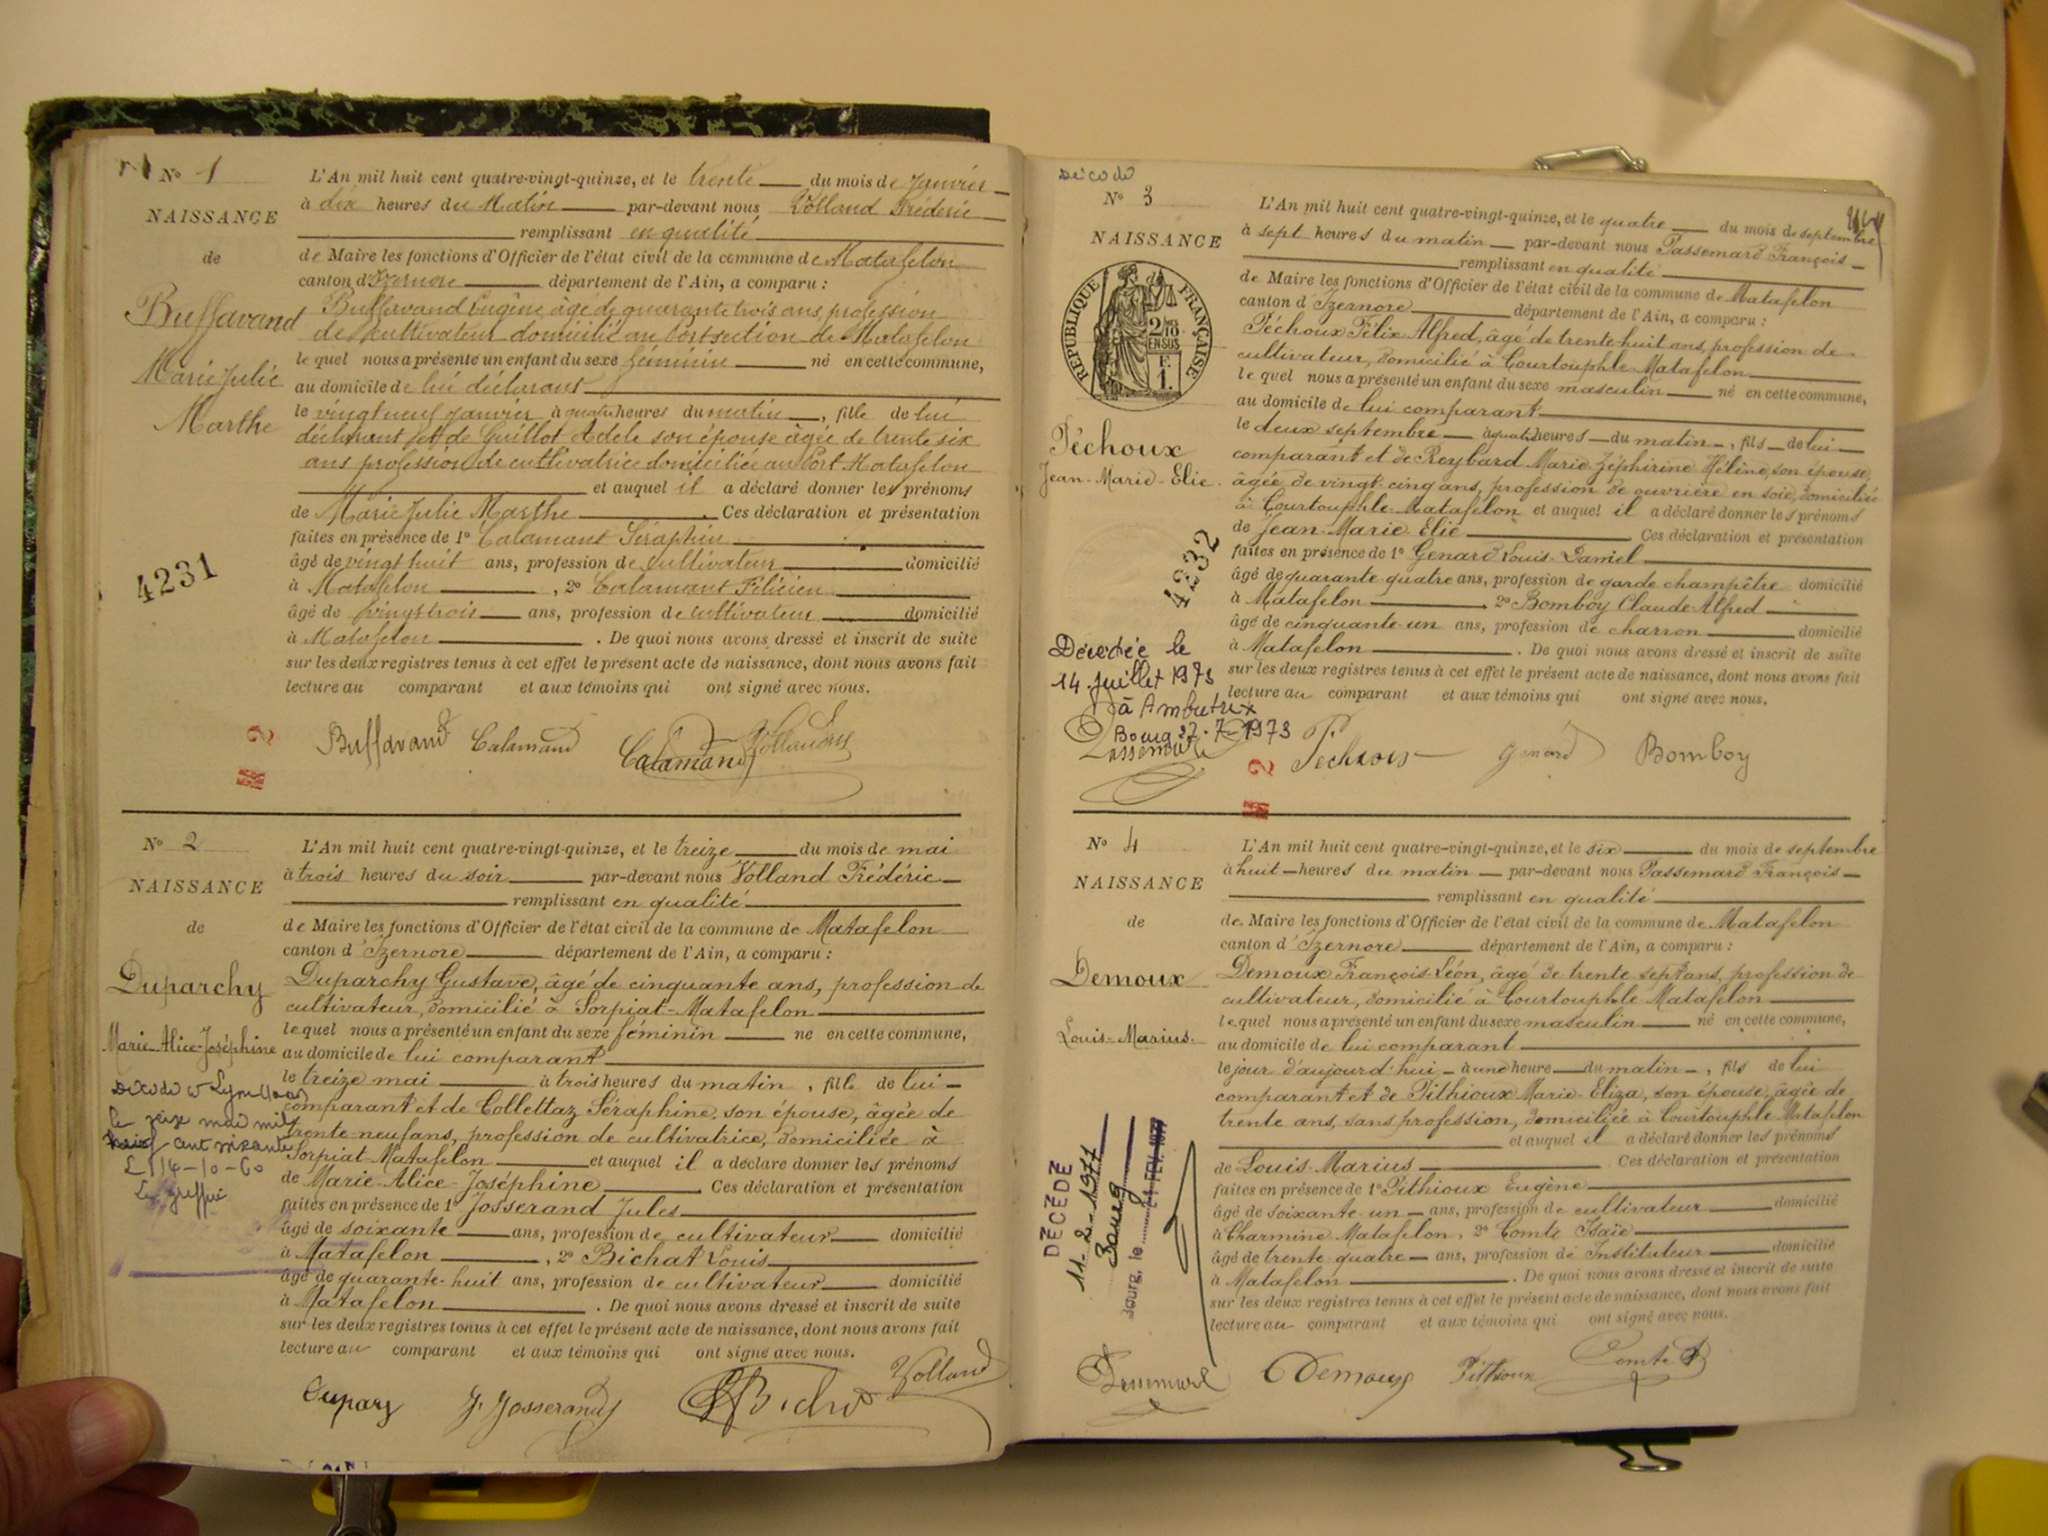 N° 1
NAISSANCE
de
Buffavand
Marie Julie
Marthe
4231
L'An mil huit cent quatre-vingt-quinze, et le trente du mois de Janvier
à dix heures du Matin par-devant nous Volland Frédéric
remplissant en qualité
de Maire les fonctions d'Officier de l'état civil de la commune de Matafelon
canton d'Izernore département de l'Ain, a comparu :
Buffavand Eugène âgé de quarante trois ans, profession
de cultivateur domicilié au Port section de Matafelon
le quel nous a présenté un enfant du sexe féminin né en cette commune,
au domicile de lui déclarant
le vingt neuf janvier à quatre heures du matin, fille de lui
déclarant et de Guillot Adèle son épouse âgée de trente six
ans profession de cultivatrice domiciliée au Port Matafelon
et auquel il a déclaré donner les prénoms
de Marie Julie Marthe. Ces déclaration et présentation
faites en présence de 1° Calamand Séraphin
âgé de vingt huit ans, profession de cultivateur domicilié
à Matafelon, 2° Calamand Félicien
âgé de vingt trois ans, profession de cultivateur domicilié
à Matafelon. De quoi nous avons dressé et inscrit de suite
sur les deux registres tenus à cet effet le présent acte de naissance, dont nous avons fait
lecture au comparant et aux témoins qui ont signé avec nous.
Buffavand Calamand Calamand Volland
2
N° 2
NAISSANCE
de
Duparchy
Marie-Alice-Joséphine
L 14-10-60
L'An mil huit cent quatre-vingt-quinze, et le treize du mois de mai
à trois heures du soir par-devant nous Volland Frédéric
remplissant en qualité
de Maire les fonctions d'Officier de l'état civil de la commune de Matafelon
canton d'Izernore département de l'Ain, a comparu :
Duparchy Gustave, âgé de cinquante ans, profession de
cultivateur, domicilié à Sorpiat-Matafelon
le quel nous a présenté un enfant du sexe féminin né en cette commune,
au domicile de lui comparant
le treize mai à trois heures du matin, fille de lui
comparant et de Collettaz Séraphine, son épouse, âgée de
trente-neuf ans, profession de cultivatrice, domiciliée à
Sorpiat Matafelon et auquel il a déclaré donner les prénoms
de Marie-Alice-Joséphine. Ces déclaration et présentation
faites en présence de 1° Josserand Jules
âgé de soixante ans, profession de cultivateur domicilié
à Matafelon, 2° Bichat Louis
âgé de quarante-huit ans, profession de cultivateur domicilié
à Matafelon. De quoi nous avons dressé et inscrit de suite
sur les deux registres tenus à cet effet le présent acte de naissance, dont nous avons fait
lecture au comparant et aux témoins qui ont signé avec nous.
J. Josserand Volland
N° 3
NAISSANCE
RÉPUBLIQUE FRANÇAISE
2/10
EN SUS
F.
1.
Péchoux
Jean-Marie-Elie
4232
Décédée le
14 Juillet 1973
à Ambutrix
Bourg 27-7-1973
L'An mil huit cent quatre-vingt-quinze, et le quatre du mois de septembre
à sept heures du matin par-devant nous Passemard François
remplissant en qualité
de Maire les fonctions d'Officier de l'état civil de la commune de Matafelon
canton d'Izernore département de l'Ain, a comparu :
Péchoux Félix-Alfred, âgé de trente-huit ans, profession de
cultivateur, domicilié à Courtouphle-Matafelon
le quel nous a présenté un enfant du sexe masculin né en cette commune,
au domicile de lui comparant
le deux septembre à quatre heures du matin, fils de lui
comparant et de Reybard Marie-Zéphirine Hélène, son épouse,
âgée de vingt-cinq ans, profession de ouvrière en soie, domiciliée
à Courtouphle-Matafelon et auquel il a déclaré donner les prénoms
de Jean-Marie Elie Ces déclaration et présentation
faites en présence de 1° Genard Louis-Daniel
âgé de quarante quatre ans, profession de garde champêtre domicilié
à Matafelon 2° Bomboy Claude Alfred
âgé de cinquante-un ans, profession de charron domicilié
à Matafelon. De quoi nous avons dressé et inscrit de suite
sur les deux registres tenus à cet effet le présent acte de naissance, dont nous avons fait
lecture au comparant et aux témoins qui ont signé avec nous.
Passemard Péchoux Genard Bomboy
2
N° 4
NAISSANCE
de
Demoux
Louis-Marius
DÉCÉDÉ
11-2-1977
Bourg
BOURG, le 21 FEV. 1977
L'An mil huit cent quatre-vingt-quinze, et le six du mois de septembre
à huit heures du matin par-devant nous Passemard François
remplissant en qualité
de Maire les fonctions d'Officier de l'état civil de la commune de Matafelon
canton d'Izernore département de l'Ain, a comparu :
Demoux François-Léon, âgé de trente sept ans, profession de
cultivateur, domicilié à Courtouphle Matafelon
le quel nous a présenté un enfant du sexe masculin né en cette commune,
au domicile de lui comparant
le jour d'aujourd'hui à une heure du matin, fils de lui
comparant et de Pithioux Marie-Eliza, son épouse, âgée de
trente ans, sans profession, domiciliée à Courtouphle Matafelon
et auquel il a déclaré donner les prénoms
de Louis-Marius Ces déclaration et présentation
faites en présence de 1° Pithioux Eugène
âgé de soixante-un ans, profession de cultivateur domicilié
à Charmine Matafelon, 2° Comte Isaïe
âgé de trente quatre ans, profession de Instituteur domicilié
à Matafelon. De quoi nous avons dressé et inscrit de suite
sur les deux registres tenus à cet effet le présent acte de naissance, dont nous avons fait
lecture au comparant et aux témoins qui ont signé avec nous.
Demoux Pithioux Comte